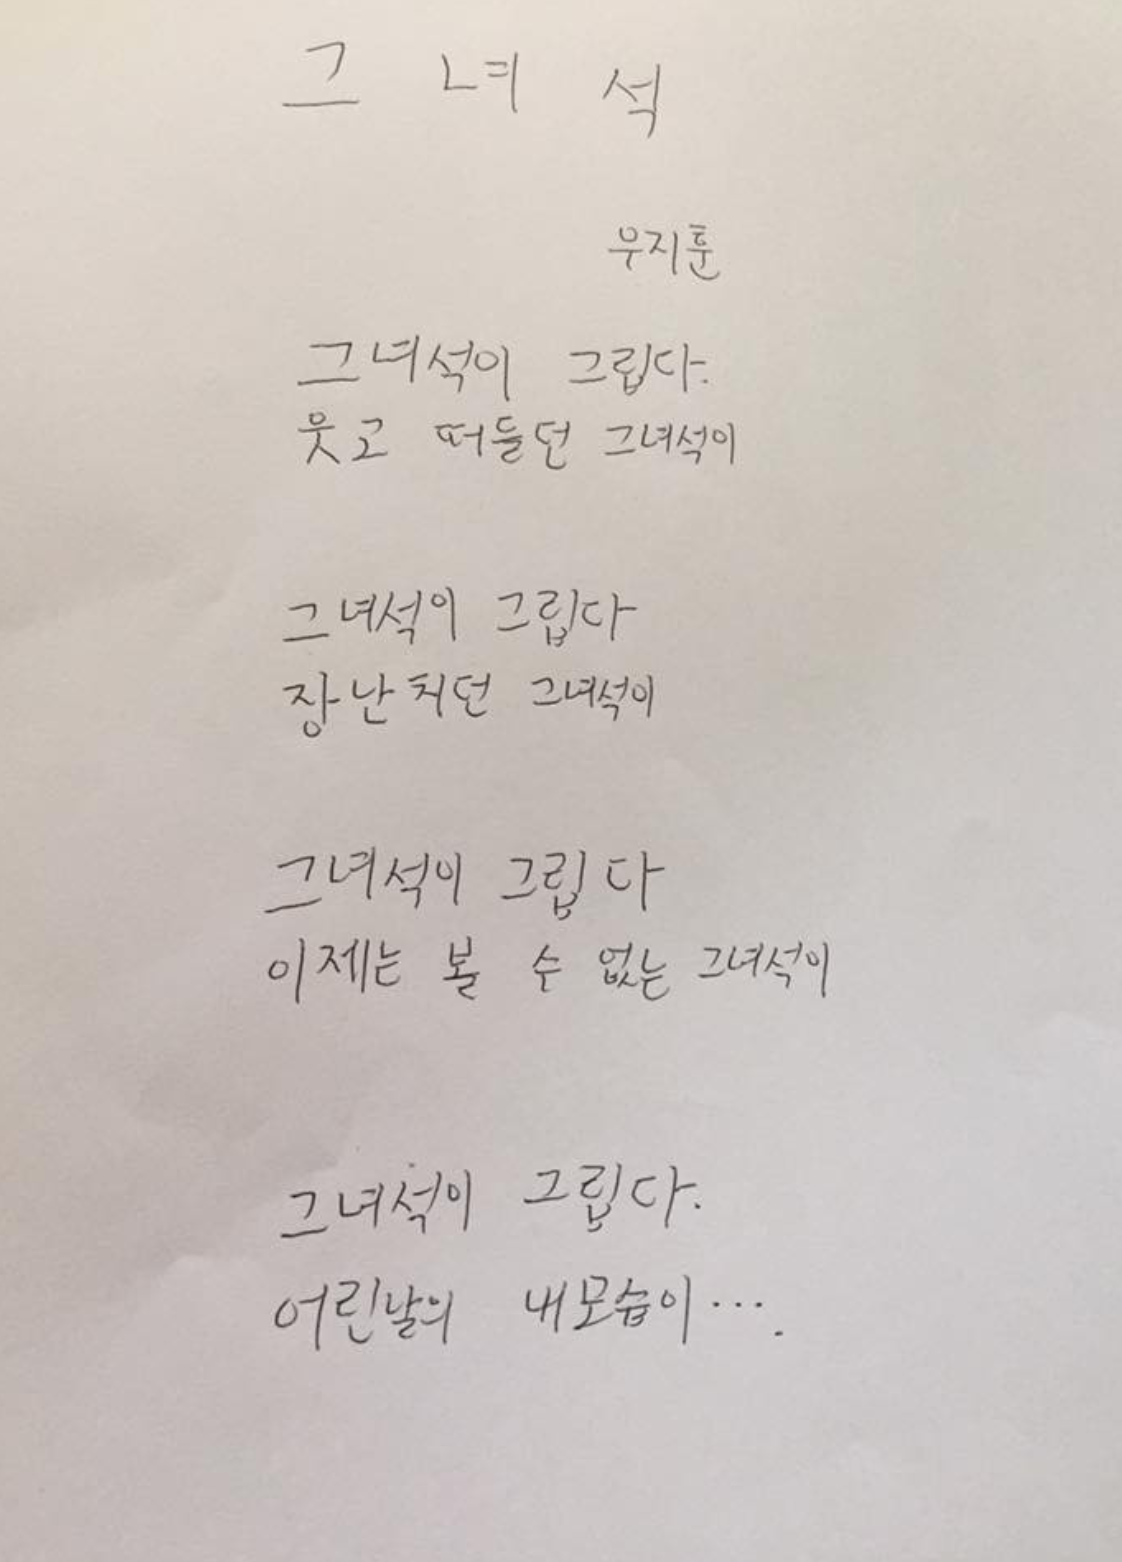 그 녀 석
우지훈
그녀석이 그립다.
웃고 떠들던 그녀석이
그녀석이 그립다
장난치던 그녀석이
그녀석이 그립다
이제는 볼 수 없는 그녀석이
그녀석이 그립다.
어린날의 내모습이....